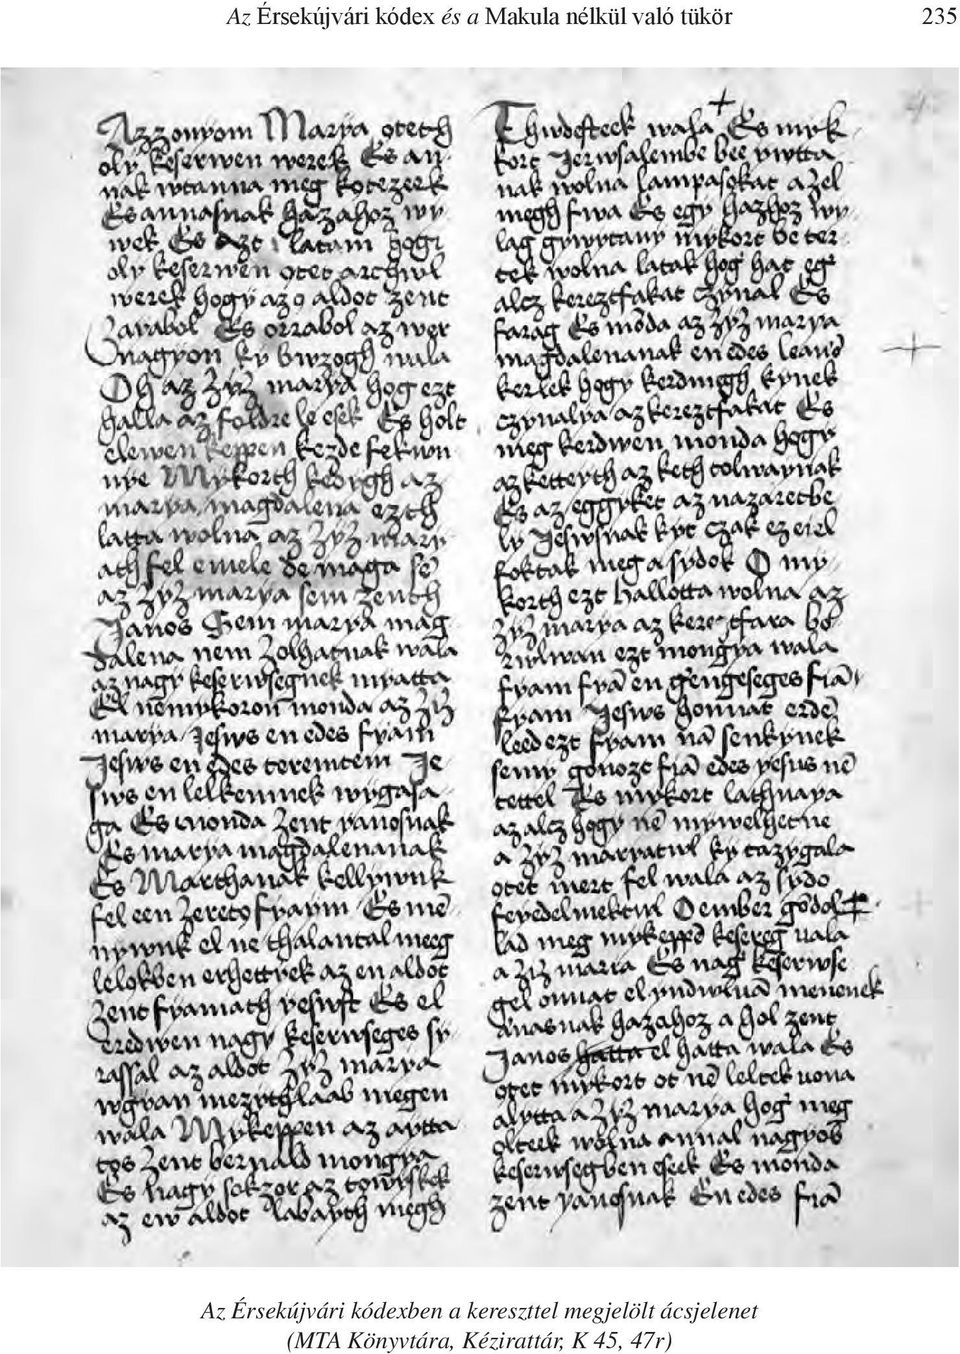 Az Érsekújvári kódex és a Makula nélkül való tükör 235
Azzonyom Marya oteth
oly keserwen werek Es an
nak wtanna meg kotezeek
Es annasnak hazahoz wy
wek Es azt latam hogi
oly keserwen otet archwl
werek hogy az o aldot zent
zaiabol Es orrabol az wer
nagyon ky bwzogh wala
Oh az zyz marya hog ezt
halla az foldre le esek Es holt
elewen keppen kezde fekwn
nye Mykorth kedygh az
marya magdalena ezth
latta wolna az zyz mary
ath fel emele de maga sē
az zyz marya sem zenth
Janos Sem marya mag
dalena nem zolhatnak wala
az nagy keserwsegnek myatta
El nemykoron monda az zyz
marya Jesws en edes fyam
Jesws en edes teremtem Je
sws en lelkemnek wygasa
ga Es monda zent yanosnak
Es marya magdalenanak
Es Marthanak kellywnk
fel een zereto fyaym Es mē
nywnk el ne thalantal meeg
lelokben erhettyek az en aldot
zent fyamath yeswst Es el
eredwen nagy keserwseges sy
rassal az aldot zyz marya
wgyan mezythlaab megen
wala Mykeppen az aytta
tos zent bernald mongya
Es nagy sokzor az towyskek
az ew aldot labayth megh
Thwdesteek wala Es myk
kort Jerwsalembe bee ywtta
nak wolna lampasokat azel
megh fwa Es egy hazhoz wy
lag gywytany mykort be ter
tek wolna latak hog hat eg
altz kereztfakat czynal Es
farag Es mōda az zyz marya
magdalenanak en edes leanō
kerlek hogy kerdmegh kynek
czynalya az kereztfakat Es
meg kerdwen monda hogy
az ketteyth az keth tolwaynak
Es az eggyket az nazaretbe
ly Jeswsnak kyt czak ez eiel
foktak meg a sydok O my
korth ezt hallotta wolna az
zyz marya az kereztfara bo
rwlwan ezt mongya wala
fyam fyā en gengeseges fiā
fyam Jesws honnat erdē
leed ezt fyam nā senkynek
semy gonozt fiā edes yesus nē
tettel Es mykort lathnaya
az altz hogy nē mywelhetne
a zyz maryatwl ky tazygala
otet mert fel wala az sydo
feyedelmektwl O ember gōdol
lad meg mykeppē kesereg uala
a ziz maria Es nag keserwse
gel onnat el yndwluā menenek
Annasnak hazahoz a hol zent
Janos hatta el hatta wala Es
otet mykort ot nē leltek uona
alytta a zyz marya hog meg
olteek wolna Annal nagyob
keserwsegben eseek Es monda
zent yanosnak En edes fiā
Az Érsekújvári kódexben a kereszttel megjelölt ácsjelenet
(MTA Könyvtára, Kézirattár, K 45, 47r)